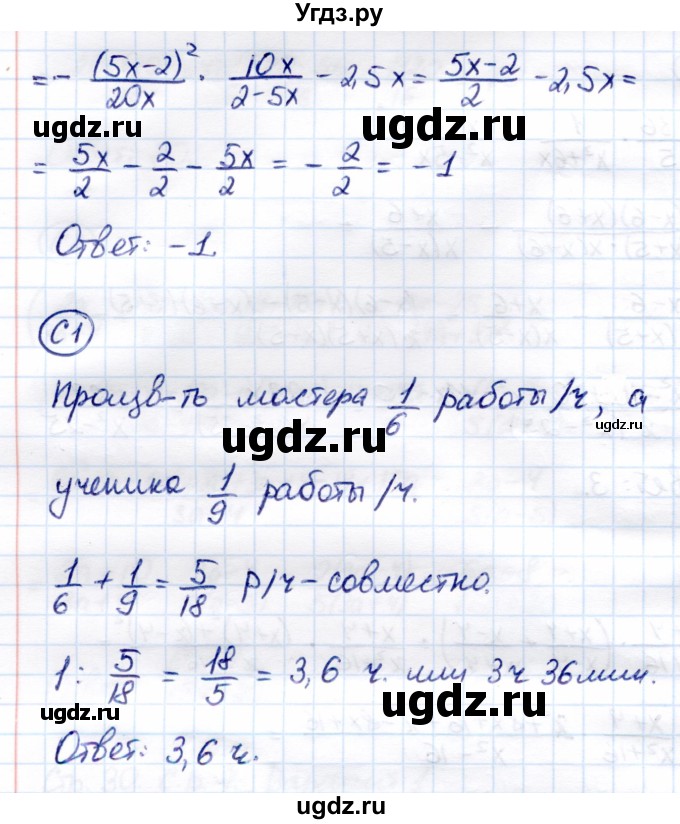 Угдз.ру
= - (5x-2)²/20x · 10x/(2-5x) - 2,5x = (5x-2)/2 - 2,5x =
ugdz.ru ugdz.ru
= 5x/2 - 2/2 - 5x/2 = - 2/2 = -1
Ответ: -1.
ugdz.ru
С1
Произв-ть мастера 1/6 работы/ч, а
ugdz.ru ugdz.ru
ученика 1/9 работы/ч.
1/6 + 1/9 = 5/18 р/ч - совместно.
ugdz.ru
1 : 5/18 = 18/5 = 3,6 ч. или 3ч 36мин.
ugdz.ru ugdz.ru
Ответ: 3,6 ч.
ugdz.ru
ugdz.ru